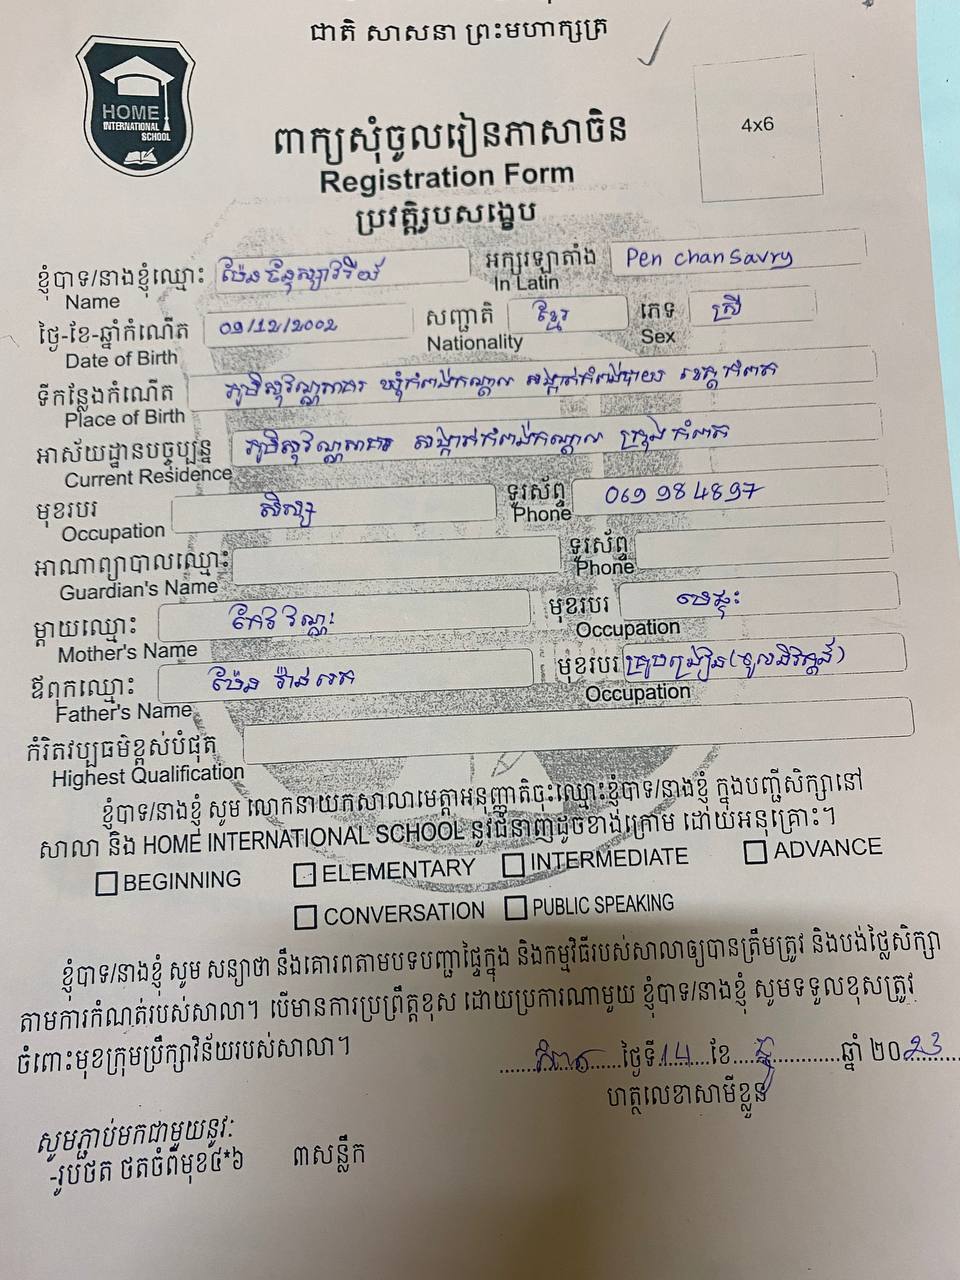 ជាតិ សាសនា ព្រះមហាក្សត្រ
HOME
INTERNATIONAL
SCHOOL
4x6
ពាក្យសុំចូលរៀនភាសាចិន
Registration Form
ប្រវត្តិរូបសង្ខេប
ខ្ញុំបាទ/នាងខ្ញុំឈ្មោះ ប៉ែន ច័ន្ទ អក្សរឡាតាំង Pen chan Savry
Name In Latin
ថ្ងៃ-ខែ-ឆ្នាំកំណើត 09/12/2002 សញ្ជាតិ ខ្មែរ ភេទ ស្រី
Date of Birth Nationality Sex
ទីកន្លែងកំណើត ភូមិសុវណ្ណសាគរ ឃុំកំពង់កណ្ដាល សង្កាត់កំពង់បាយ ខេត្តកំពត
Place of Birth
អាស័យដ្ឋានបច្ចុប្បន្ន ភូមិសុវណ្ណសាគរ សង្កាត់កំពង់កណ្ដាល ក្រុងកំពត
Current Residence
មុខរបរ សិស្ស ទូរស័ព្ទ 069 984897
Occupation Phone
អាណាព្យាបាលឈ្មោះ ទូរស័ព្ទ
Guardian's Name Phone
ម្ដាយឈ្មោះ កែវ វណ្ណៈ មុខរបរ មេផ្ទះ
Mother's Name Occupation
ឪពុកឈ្មោះ ប៉ែន មុខរបរ គ្រូបង្រៀន(ចូលនិវត្តន៍)
Father's Name Occupation
កំរិតវប្បធម៌ខ្ពស់បំផុត
Highest Qualification
ខ្ញុំបាទ/នាងខ្ញុំ សូម លោកនាយកសាលាមេត្តាអនុញ្ញាតិចុះឈ្មោះខ្ញុំបាទ/នាងខ្ញុំ ក្នុងបញ្ជីសិក្សានៅ
សាលា និង HOME INTERNATIONAL SCHOOL នូវជំនាញដូចខាងក្រោម ដោយអនុគ្រោះ។
BEGINNING ELEMENTARY INTERMEDIATE ADVANCE
CONVERSATION PUBLIC SPEAKING
ខ្ញុំបាទ/នាងខ្ញុំ សូម សន្យាថា នឹងគោរពតាមបទបញ្ជាផ្ទៃក្នុង និងកម្មវិធីរបស់សាលាឲ្យបានត្រឹមត្រូវ និងបង់ថ្លៃសិក្សា
តាមការកំណត់របស់សាលា។ បើមានការប្រព្រឹត្តខុស ដោយប្រការណាមួយ ខ្ញុំបាទ/នាងខ្ញុំ សូមទទួលខុសត្រូវ
ចំពោះមុខក្រុមប្រឹក្សាវិន័យរបស់សាលា។
កំពត ថ្ងៃទី 14 ខែ ធ្នូ ឆ្នាំ ២០23
ហត្ថលេខាសាមីខ្លួន
សូមភ្ជាប់មកជាមួយនូវៈ
-រូបថត ថតចំពីមុខ៤*៦ ៣សន្លឹក